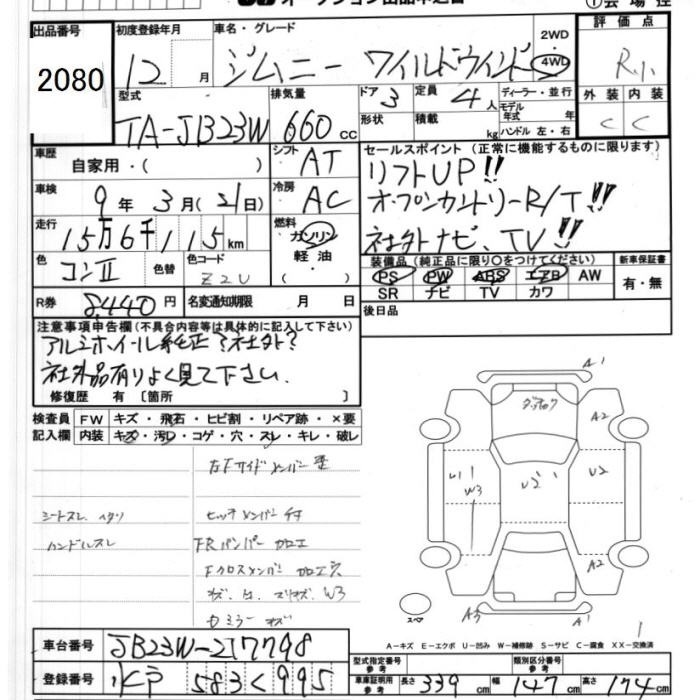 出品番号 初度登録年月 車名・グレード 2WD 評価点
2080 12 月 ジムニー ワイルドウインド 4WD R.1
型式 排気量 ドア 3 定員 4人 ディーラー・並行 外装 内装
TA-JB23W 660 cc 形状 積載 kg モデル年式 年 ハンドル 左・右 C C
車歴 自家用・( ) シフト AT セールスポイント (正常に機能するものに限ります)
車検 9年3月(21日) 冷房 AC リフトUP!!
走行 15万6千115km 燃料 ガソリン オープンカントリーR/T!!
軽油 ・( 社外ナビ、TV!!
色 コンII 色替 色コード Z2U 装備品(純正品に限り○をつけてください) 新車保証書
PS PW ABS エアB AW 有・無
SR ナビ TV カワ
R券 8,440円 名変通知期限 月 日 後日品
注意事項申告欄(不具合内容等は具体的に記入して下さい)
アルミホイール純正?社外?
社外品有りよく見て下さい.
修復歴 有 [箇所 ]
検査員 FW キズ・飛石・ヒビ割・リペア跡・×要
記入欄 内装 キズ・汚レ・コゲ・穴・スレ・キレ・破レ
シートスレ ヘタリ
ハンドルスレ
FRバンパー加工
A1
A2
U2 U2
W3
A2
スペア A3 A1
A-キズ E-エクボ U-凹み W-補修跡 S-サビ C-腐食 XX-交換済
車台番号 JB23W-217798 型式指定番号 参考 類別区分番号 参考
登録番号 583く995 車庫証明用 参考 長さ 339cm 幅 147cm 高さ 174cm